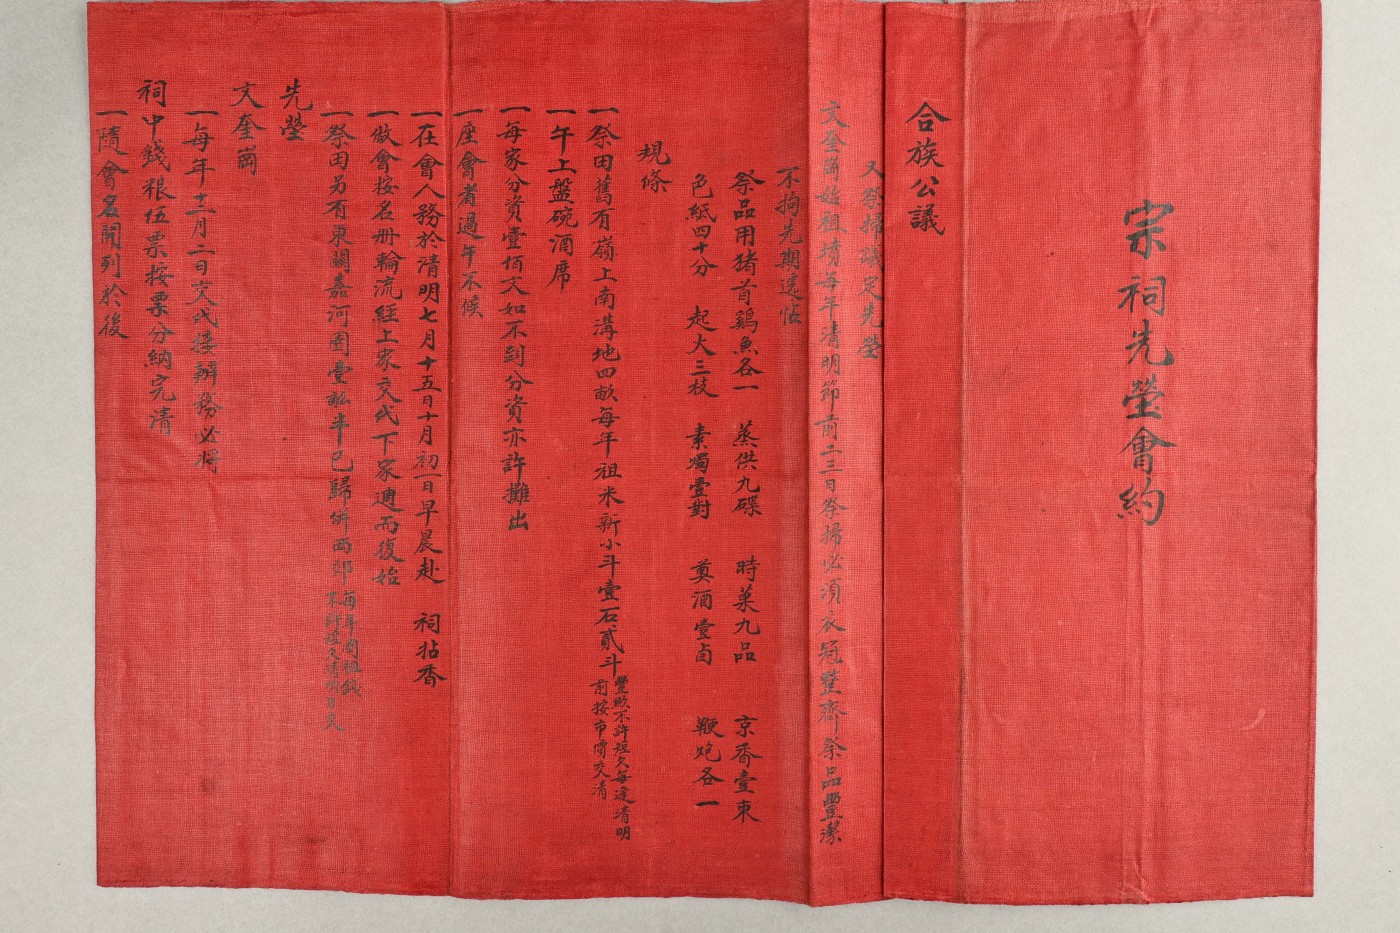 宗祠先塋會約
合族公議
又祭掃議定先塋
文奎崗始祖墳每年清明節前二三日祭掃必須衣冠整齊祭品豐潔
不拘先期送帖
祭品用猪首鷄魚各一 蒸供九碟 時菓九品 京香壹束
色紙四十分 起火三枝 素燭壹對 奠酒壹卣 鞭炮各一
規條
一祭田舊有嶺上南溝地四畝每年祖米新小斗壹石貳斗豐歉不許短欠每逢清明前按市價交清
一午上盤碗酒席
一每家分資壹佰文如不到分資亦許攤出
一座會者過午不候
一在會人務於清明七月十五日十月初一日早晨赴 祠拈香
一做會按名册輪流經上家交代下家週而復始
一祭田另有東關嘉河園壹畝半已歸併西郊每年園租錢不許短欠清明日交
先塋
文奎崗
一每年十二月二日交代接辦務必將
祠中錢粮伍票按票分納完清
一隨會名開列於後